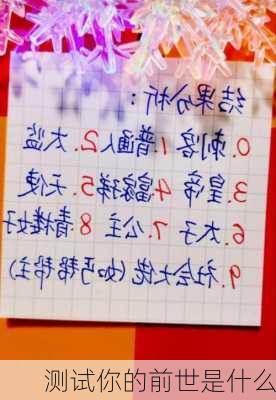 结果分析:
0.刺客 1.普通人 2.太监
3.皇帝 4.富家 5.天使
6.太子 7.公主 8.青楼女子
9.社会大佬(如丐帮帮主)
测试你的前世是什么